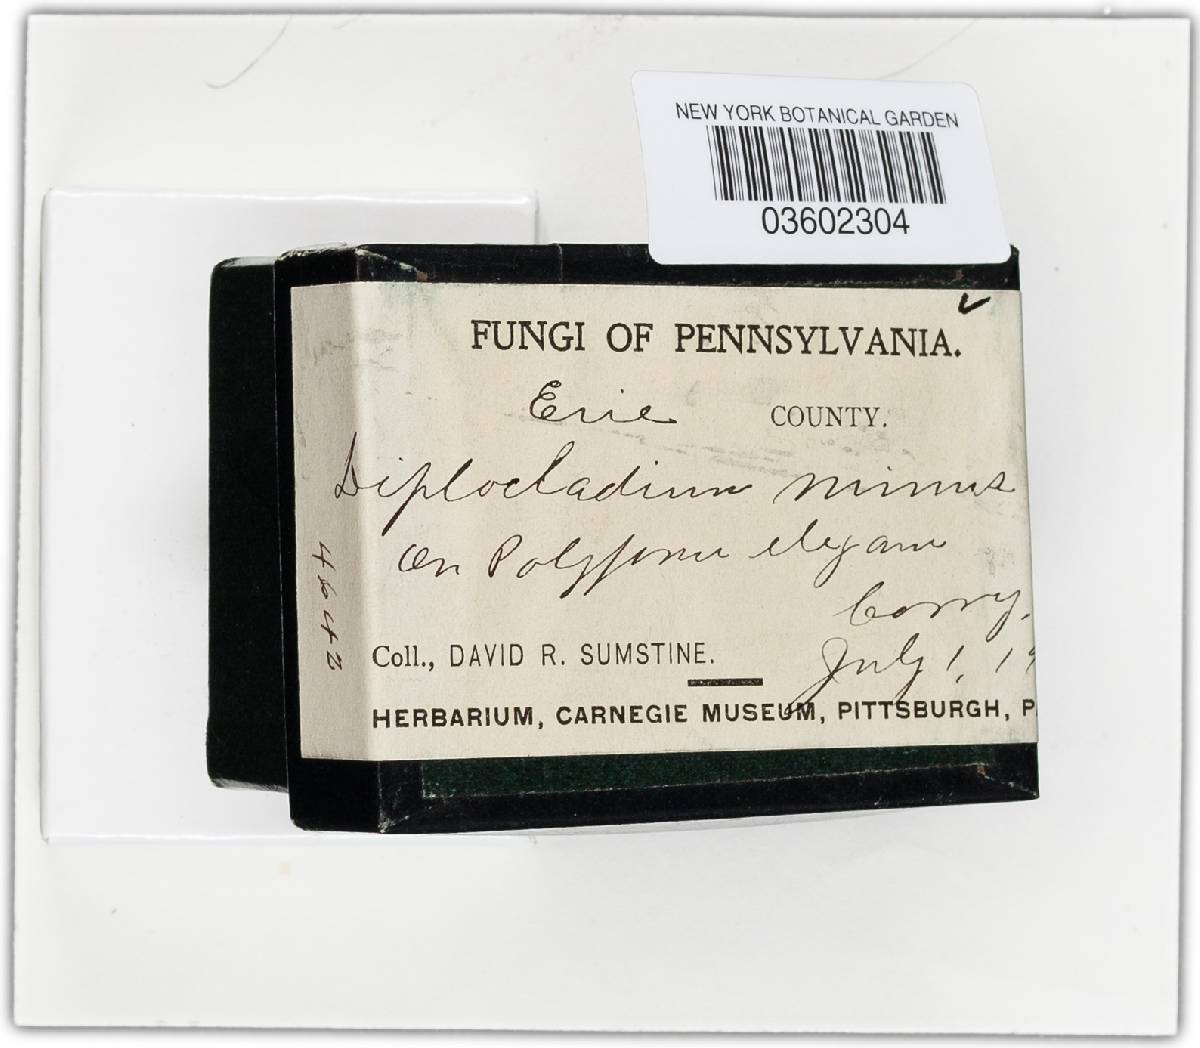 NEW YORK BOTANICAL GARDEN
03602304
FUNGI OF PENNSYLVANIA.
Erie COUNTY.
Diplocladium minus
On Polyporus elegans
Corry,
Coll., DAVID R. SUMSTINE.
July 1, 19
HERBARIUM, CARNEGIE MUSEUM, PITTSBURGH, P
4642